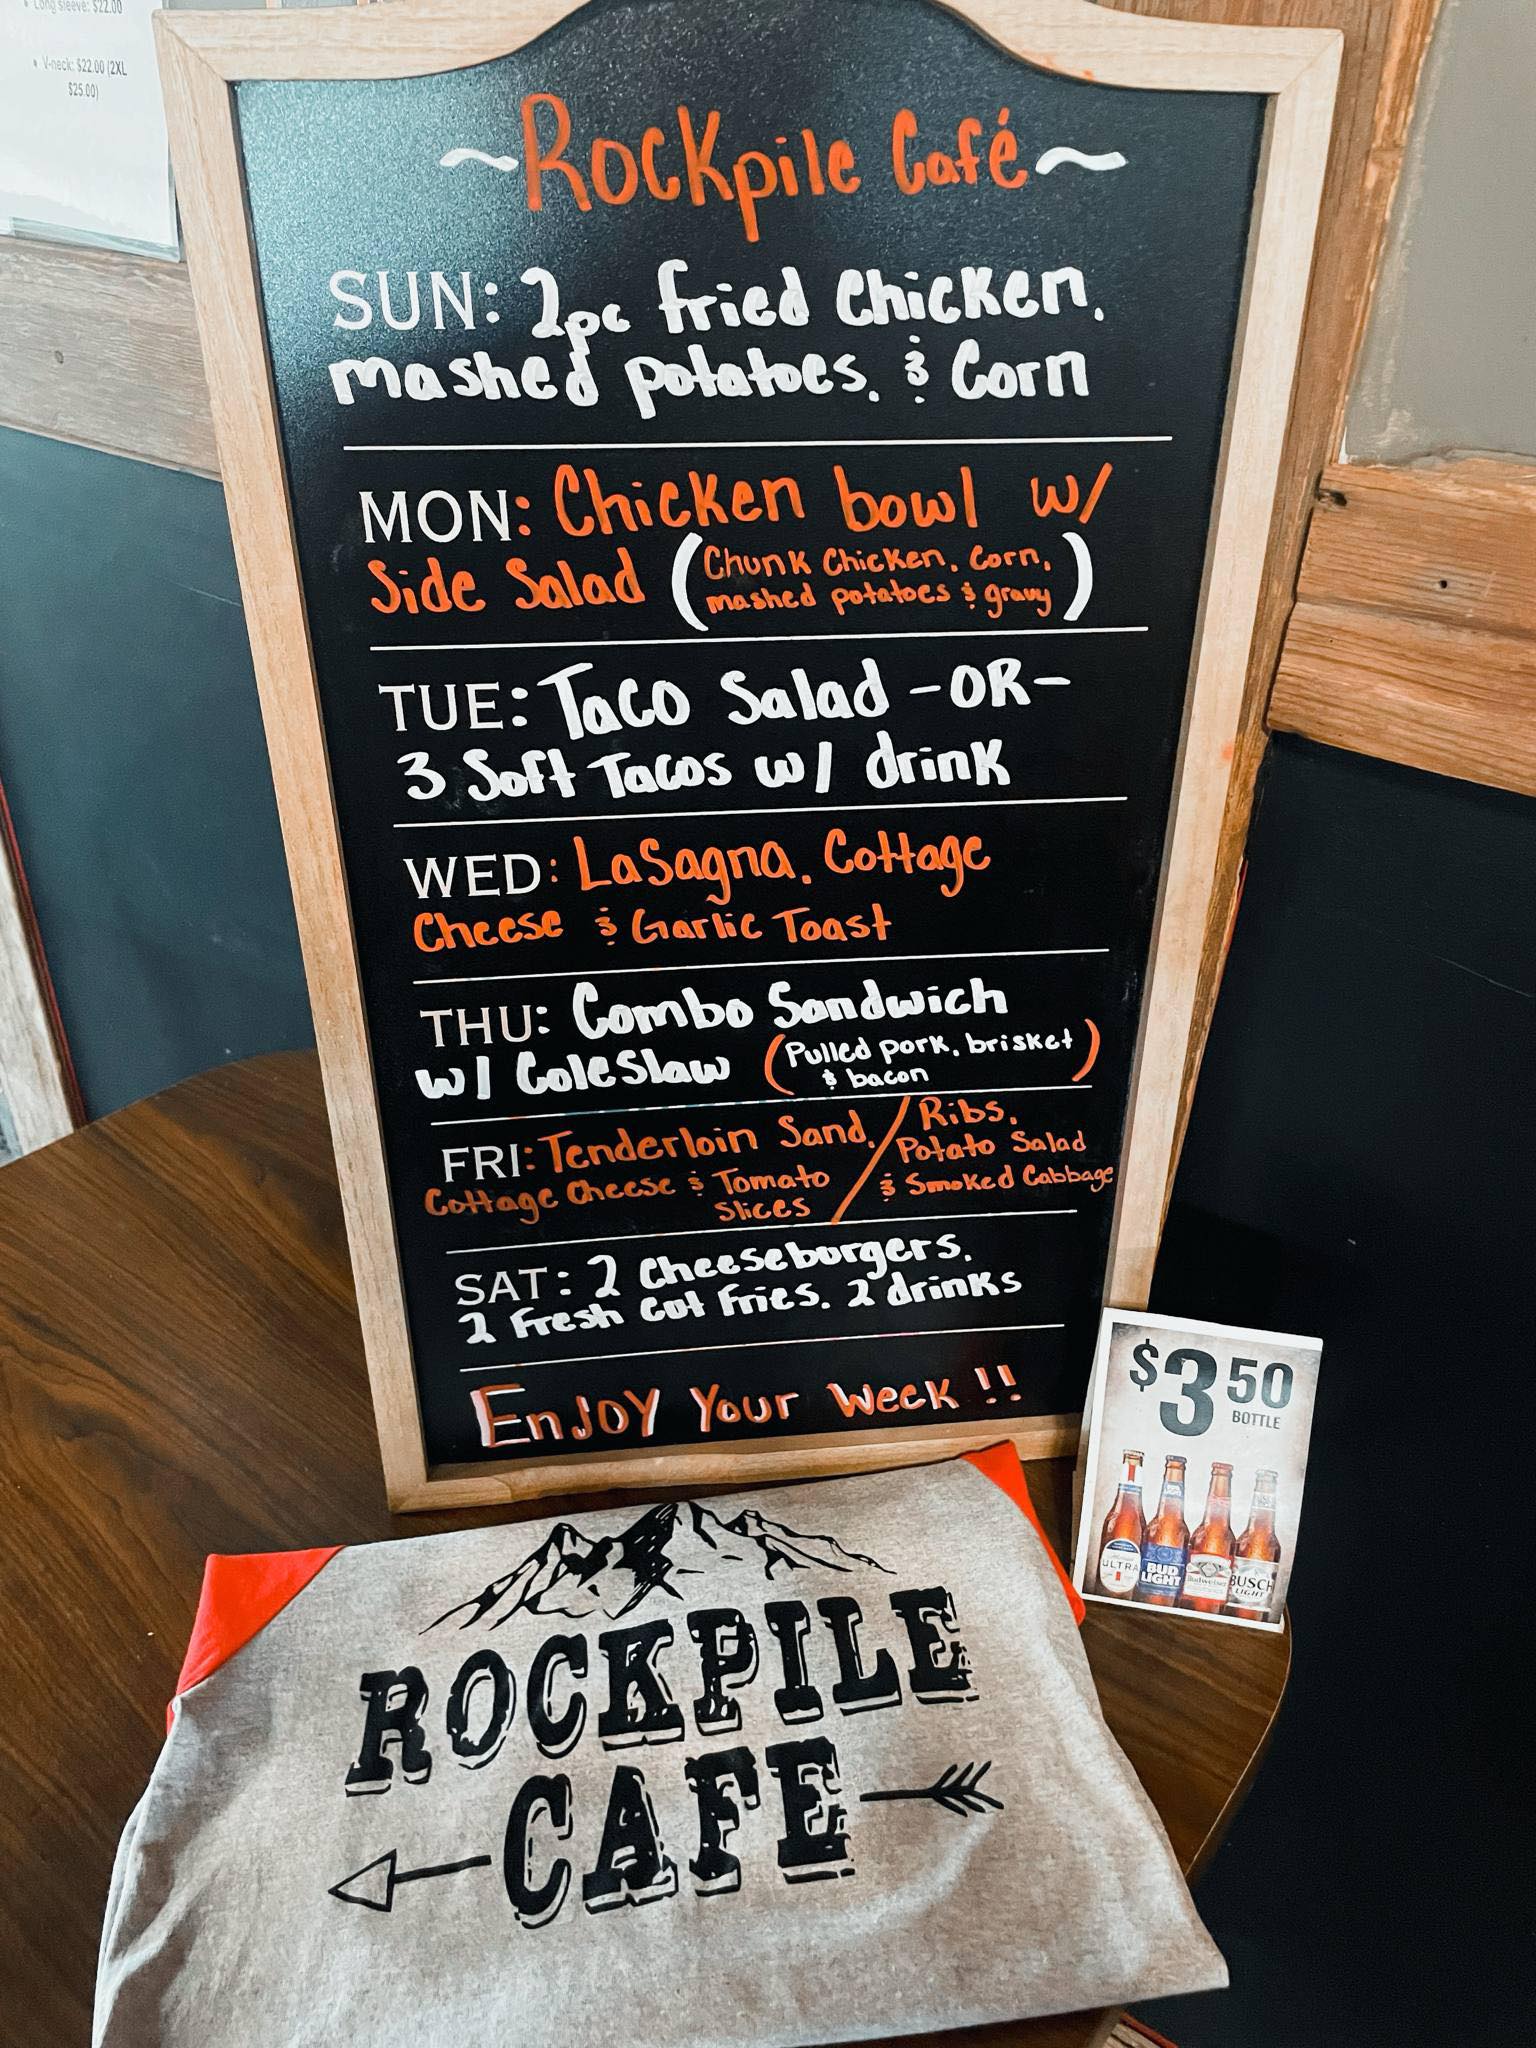 • Long sleeve: $22.00
• V-neck: $22.00 (2XL
$25.00)
~Rockpile Café~
SUN: 2pc fried chicken,
mashed potatoes, & Corn
MON: Chicken bowl w/
Side Salad (Chunk Chicken, Corn,
mashed potatoes & gravy)
TUE: Taco Salad -OR-
3 Soft Tacos w/ drink
WED: LaSagna, Cottage
Cheese & Garlic Toast
THU: Combo Sandwich
w/ ColeSlaw (Pulled pork, brisket
& bacon)
FRI: Tenderloin Sand,
Cottage Cheese & Tomato
Slices
/ Ribs,
Potato Salad
& Smoked Cabbage
SAT: 2 Cheeseburgers,
2 Fresh Cut Fries, 2 drinks
EnJOY Your Week!!
$3 50
BOTTLE
ULTRA
BUD
LIGHT
Budweiser
BUSCH
LIGHT
ROCKPILE
CAFE